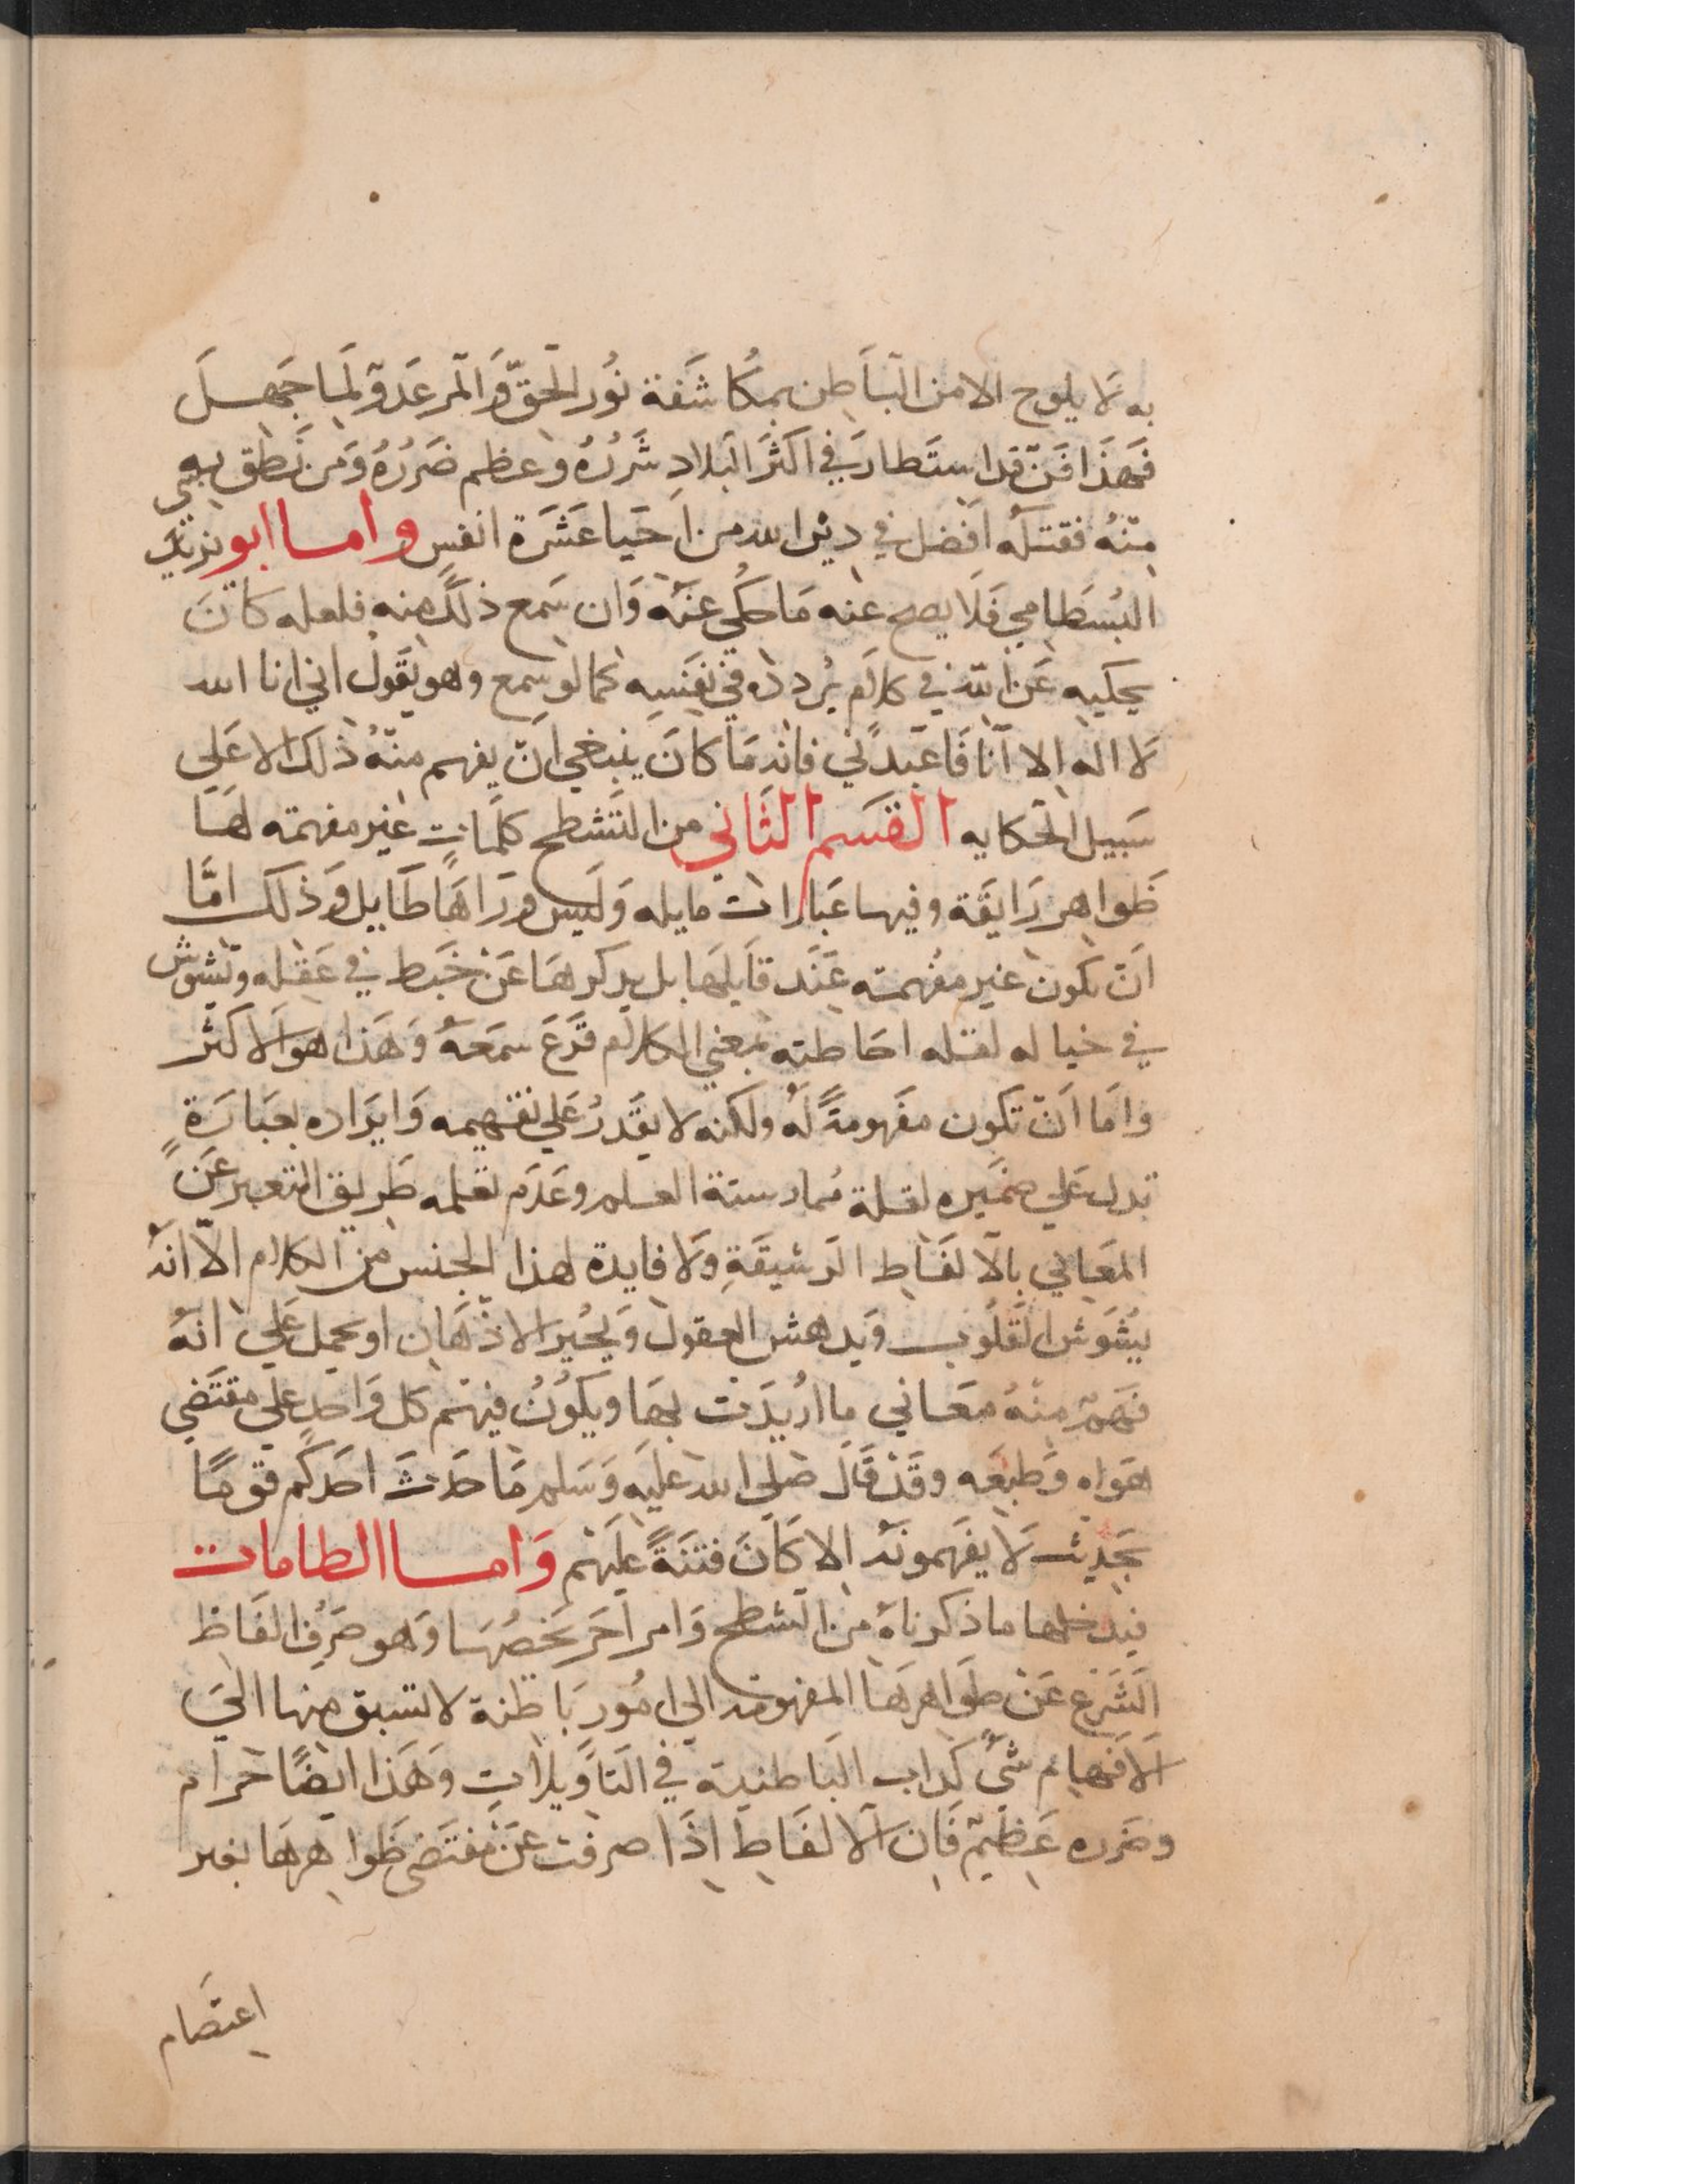 به لا يلوح الا من الباطن بمكاشفة نور الحق والمرء عدو لما جهل
فهذا فن قد استطار في اكثر البلاد شرره وعظم ضرره ومن نطق بشي
منه فقتله افضل في دين الله من احيا عشرة انفس واما ابو يزيد
البسطامي فلا يصح عنه ما حكي عنه وان سمع ذلك منه فلعله كان
يحكيه عن الله في كلام يردده في نفسه كما لو سمع وهو يقول اني انا الله
لا اله الا انا فاعبدني فانه ما كان ينبغي ان يفهم منه ذلك الا علي
سبيل الحكايه القسم الثاني من الشطح كلمات غير مفهمته لها
ظواهر رايقة وفيها عبارات مايله وليس وراها طايل وذلك امّا
ان تكون غير مفهمته عند قايلها بل يدكرها عن خبط في عقله وتشوش
في خياله لقله احاطته بمعني الكلام قرع سمعه وهذا هو الاكثر
واما ان تكون مفهومةً له ولكنه لا يقدر علي تفهيمه وايراده بعبارةٍ
تدل علي ضميره لقلة ممارسته العلم وعدم تعلمه طريق التعبير عن
المعاني بالالفاظ الرشيقة ولا فايدة لهذا الجنس من الكلام الاّ انه
يشوش القلوب ويدهش العقول ويحير الاذهان او يحمل علي انه
فهم منه معاني ما اريدت بها ويكون فهم كل واحد علي مقتضي
هواه وطبعه وقد قال صلي الله عليه وسلم ما حدث احدكم قومًا
بحديث لا يفهمونه الا كان فتنةً عليهم واما الطامات
فيدخلها ما ذكرناه من الشطح وامر اخر يخصها وهو صرف الفاظ
الشرع عن ظواهرها المفهومه الي امور باطنة لا تسبق منها الي
الافهام شيٌ كداب الباطنية في التاويلات وهذا ايضًا حرام
وضرره عظيم فان الالفاظ اذا صرفت عن مقتضي ظواهرها بغير
اعتصام